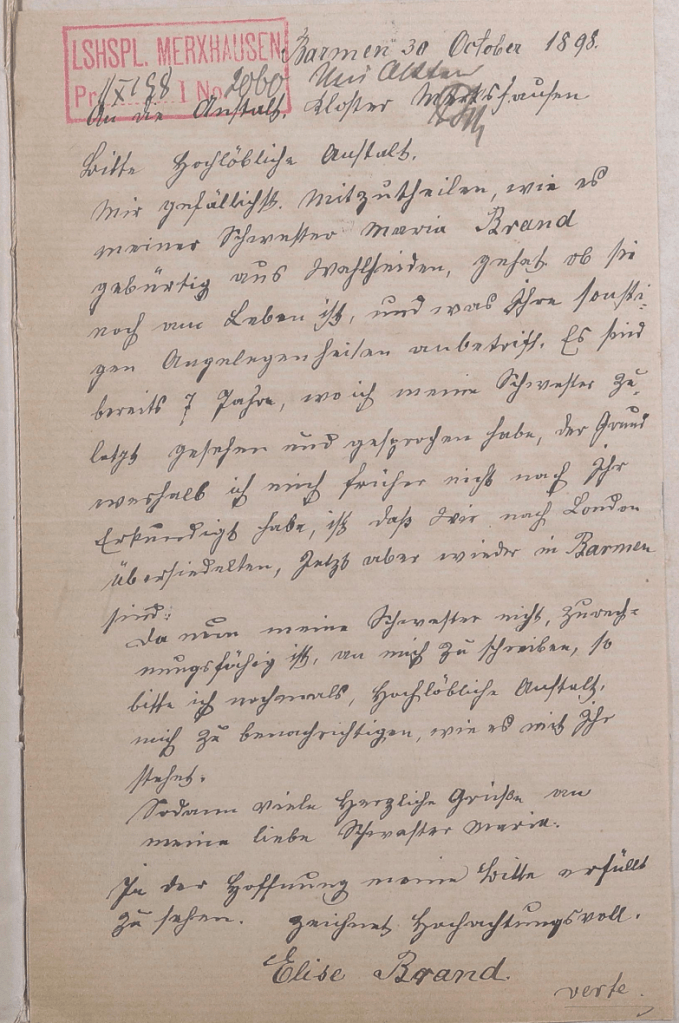 Barmen 30 October 1898.
LSHSPL. MERXHAUSEN
Pr. 1/XI 98 I No 2060
Zu Akten
An die Anstalt, Kloster Merxhausen
Bitte Hochlöbliche Anstalt.
Mir gefälligst. Mitzutheilen, wie es
meiner Schwester Maria Brand
gebürtig aus Wahlheiden, gehat ob sie
noch am Leben ist, und was Ihre sonsti-
gen Angelegenheiten anbetrift. Es sind
bereits 7 Jahre, wo ich meine Schwester zu-
letzt gesehen und gesprochen habe, der Grund
weshalb ich mich früher nicht nach Ihr
Erkundigt habe, ist daß Wir nach London
übersiedelten, Jetzt aber wieder in Barmen
sind.
Da nun meine Schwester nicht, zurech-
nungsfähig ist, an mich zu schreiben, so
bitte ich nochmals, Hochlöbliche Anstalt,
mich zu benachrichtigen, wie es mit Ihr
stehet.
Sodann viele Herzliche Grüße an
meine liebe Schwester Maria.
In der Hoffnung meine Bitte erfüllt
zu sehen. zeichnet Hochachtungsvoll.
Elise Brand.
verte.